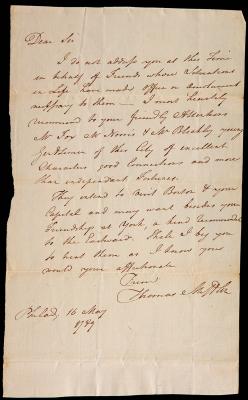 Dear Sir
I do not address you at this Time
in behalf of Friends whose Situations
in Life have made office or
necessary to them — I most heartily
recommend to your friendly Attentions
Mr Fox Mr Norris & Mr Bleakly young
Gentlemen of this City of excellent
Characters good Connections and more
than independent Fortunes.
They intend to visit Boston & your
Capital and may want besides your
Friendship at York, a kind
to the Eastward. I beg you
to treat them as I know you
would your affectionate
Friend
Thomas Mifflin
Philad, 16 May
1789